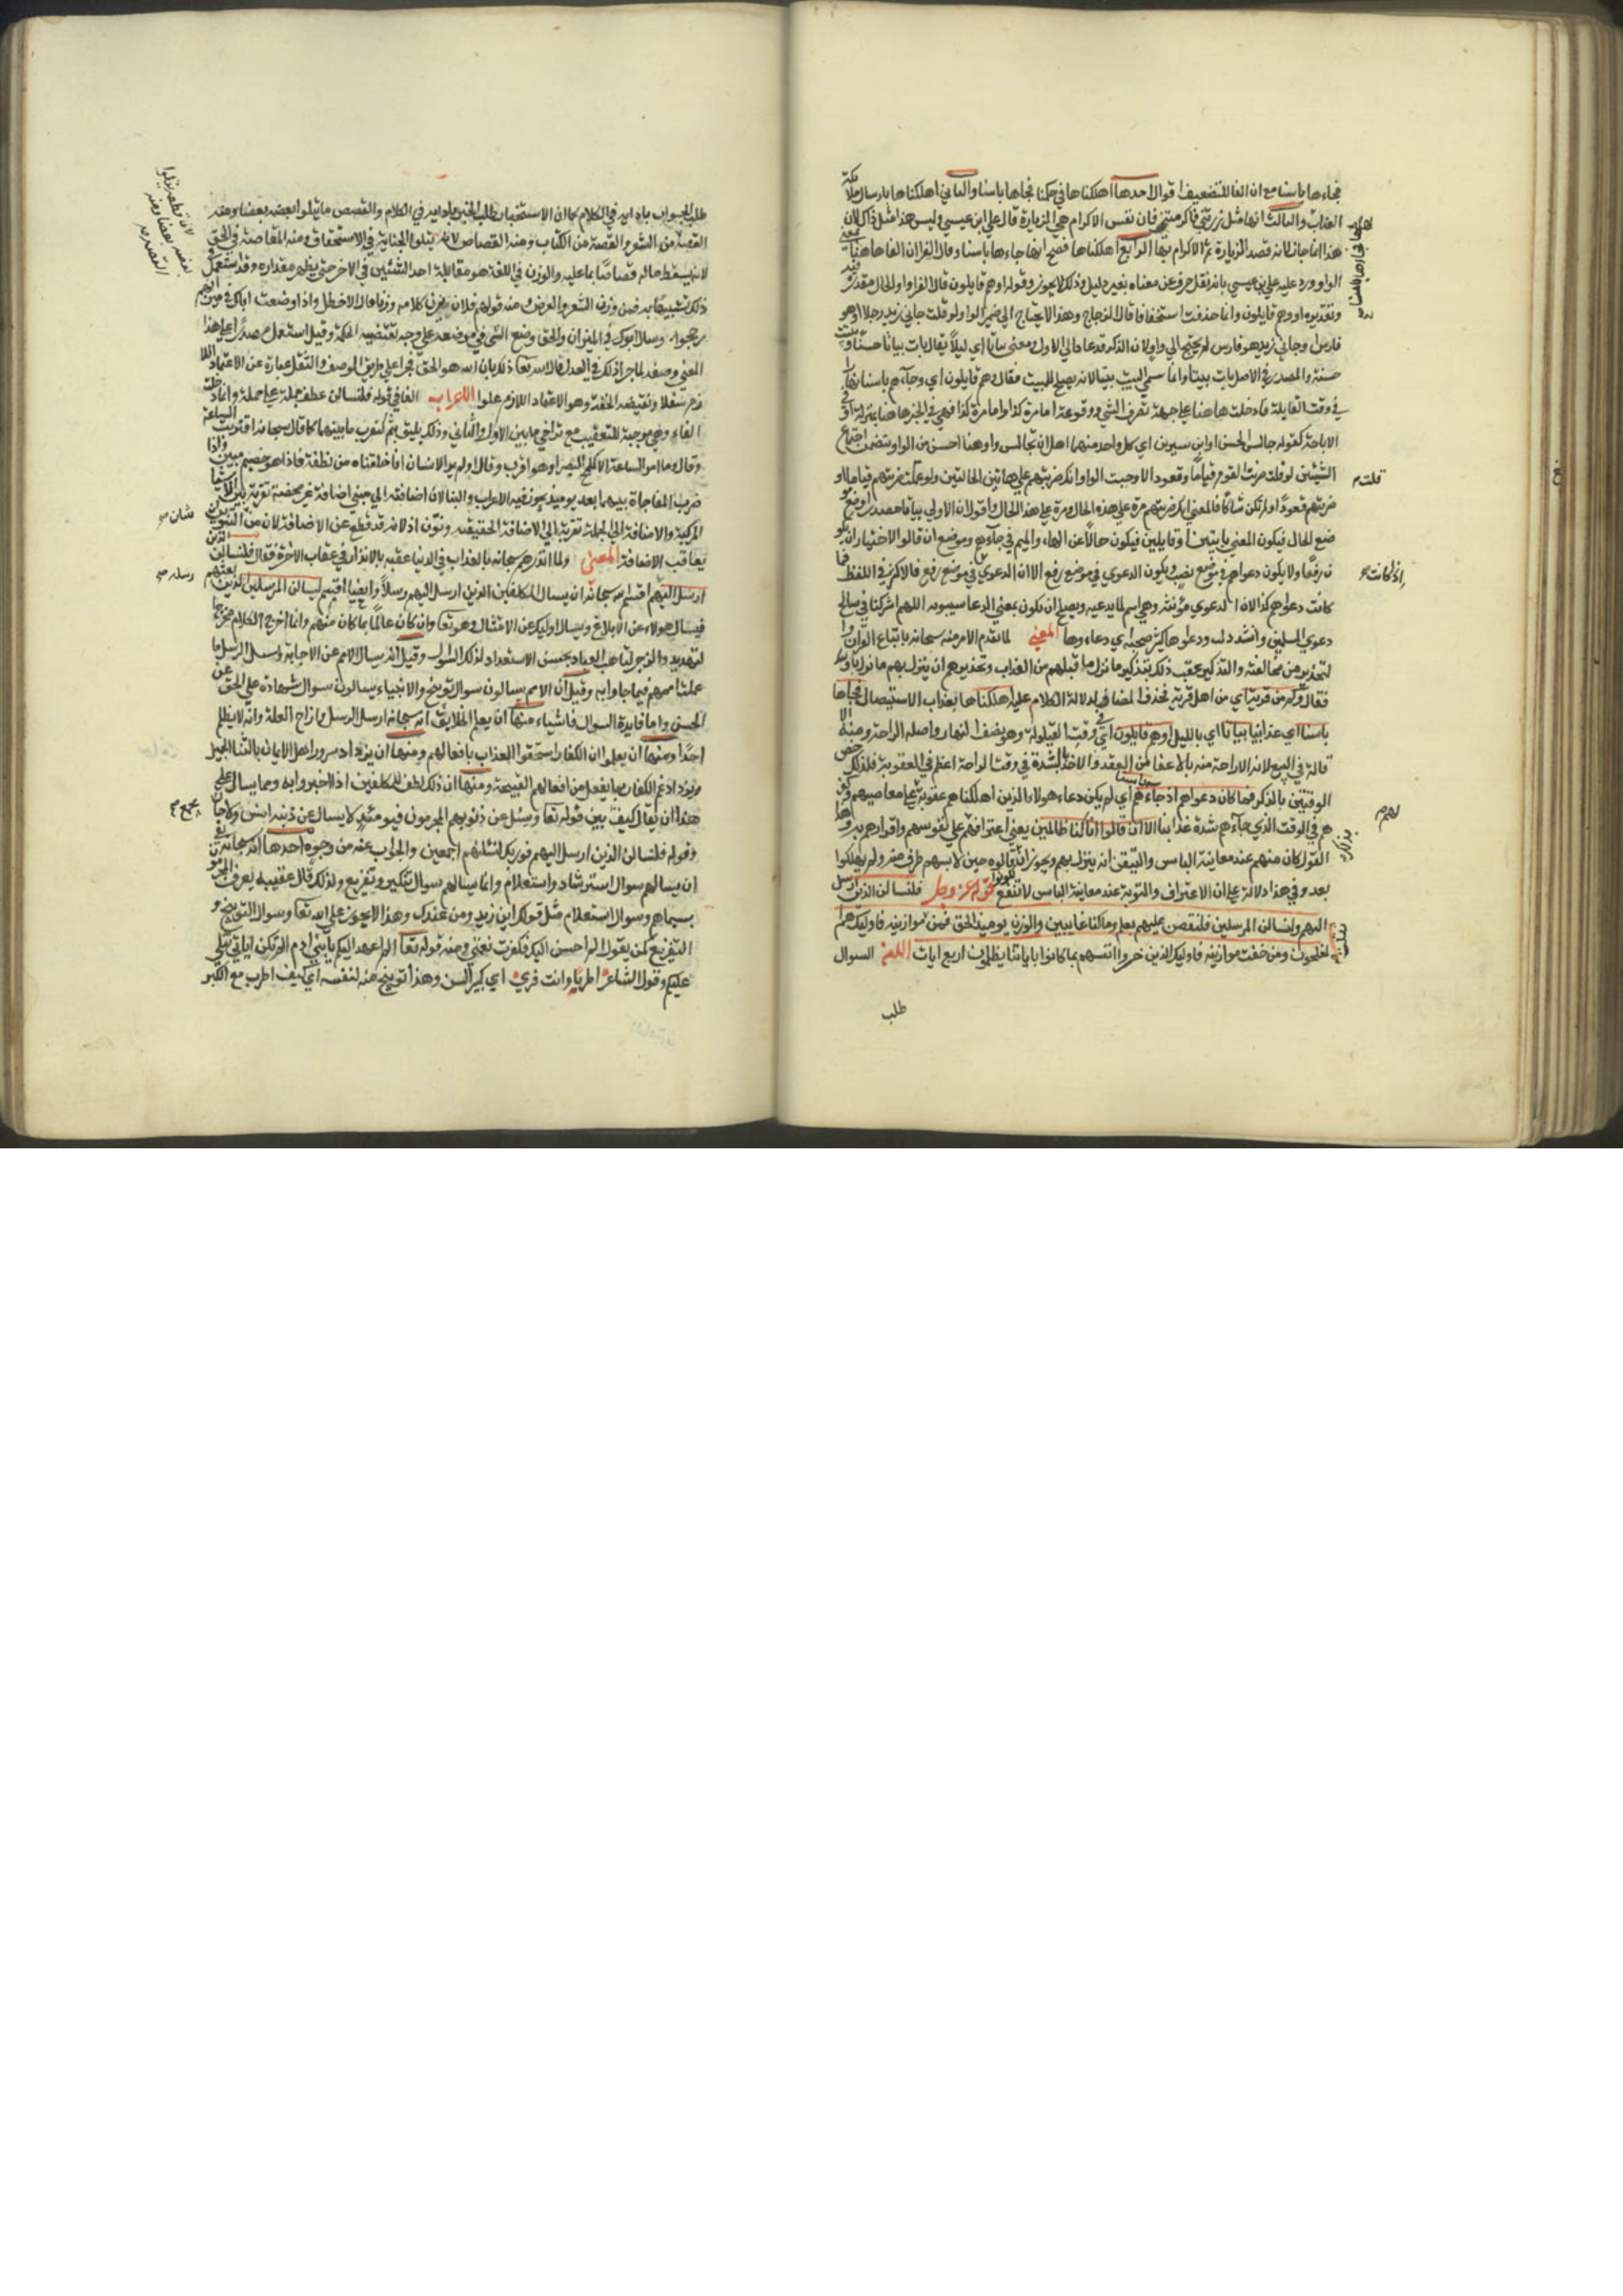 فجاءها باسنا مع ان الفا للتعقيب اقوال احدها اهلكناها في حكمنا فجاءها باسنا والثاني اهلكناها بارسال ملائكة
العذاب والثالث انها مثل زرتني فاكرمتني فان نفس الاكرام هي الزيارة قال علي ابن عيسى وليس هذا مثل ذاك لان
هذا انما جاز لانه قصد الزيارة ثم الاكرام بها الرابع اهلكناها فصح انها جاءها باسنا وقال الفرا ان الفا هاهنا بمعنى
الواو ورد عليه علي بن عيسى بانه نقل حرف عن معناه بغير دليل وذلك لا يجوز وقوله او هم قايلون قال الفرا واو الحال مقدرة فيه
وتقديره او وهم قايلون وانما حذفت استخفافا قال الزجاج وهذا لا يحتاج الى ضمير الواو ولو قلت جاني زيد راجلا او هو
فارس او جاني زيد هو فارس لم يحتج الى واو لان الذكر قد عاد الى الاول ومعنى بياتا اي ليلا يقال بات بياتا حسنا وبيتة
حسنة والمصدر في الاصل بات بيتا وانما سمي البيت بيتا لانه يصلح للمبيت فقال وهم قايلون اي وجاءهم باسنا نهارا
في وقت القايلة فاو دخلت هاهنا على جهة تصرف الشي ووقوعه اما مرة كذا واما مرة كذا فهي في الخبر هاهنا بمنزلة او في
الاباحة كقولهم جالس الحسن او ابن سيرين اي كل واحد منهما اهل ان تجالس واو هنا احسن من الواو يتضمن اجتماع
الشيئين لو قلت ضربت القوم قياما وقعودا لاوجبت الواو انك ضربتهم على هاتين الحالتين ولو قلت ضربتهم قياما او
ضربتهم قعودا ولم تكن شاكا فالمعنى انك ضربتهم مرة على هذه الحال ومرة على هذا الحال واقول ان الاولى بياتا مصدر وضع مو
ضع الحال فيكون المعنى بايتين او قايلين فيكون حالا عن الهاء والميم في جاءهم وموضع ان قالوا الاختيار ان يكو
ن رفعا ولا يكون دعواهم في موضع نصب ويكون الدعوى في موضع رفع الا ان الدعوى في موضع رفع فالاكثر في اللفظ فما
كانت دعواهم كذا لان الدعوى مؤنثة وهي اسم لما يدعيه ويصلح ان يكون بمعنى الدعا سيبويه اللهم اشركنا في صالح
دعوى المسلمين وانشد ودعواها كثير صخبه اي دعاءوها المعنى لما تقدم الامر منه سبحانه باتباع القران وا
لتحذير من مخالفته والتذكير عقب ذلك بتذكير ما نزل بمن قبلهم من العذاب وتحذيرهم ان ينزل بهم ما نزل باولئك
فقال وكم من قرية اي من اهل قرية فحذف المضاف لدلالة الكلام عليه اهلكناها بعذاب الاستيصال فجاها
باسنا اي عذابنا بياتا اي بالليل او هم قايلون اي في وقت القيلولة وهو نصف النهار واصله الراحة ومنه الا
قالة في البيع لانه الاراحة منه بالاعفا من العقد والاخذ بالشدة في وقت الراحة اعظم في العقوبة فلذلك خص
الوقتين بالذكر فما كان دعواهم اذ جاءهم باسنا اي لم يكن دعاء هولاء الذين اهلكناهم عقوبة على معاصيهم وكفر
هم في الوقت الذي جاءهم شدة عذابنا الا ان قالوا انا كنا ظالمين يعني اعترافهم على نفوسهم واقرارهم به وهذا
القول كان منهم عند معاينة الباس والتيقن انه ينزل بهم ويجوز ان قالوه حين لابسهم طرف منه ولم يهلكوا
بعد وفي هذا دلالة على ان الاعتراف والتوبة عند معاينة الباس لا تنفع قوله عز وجل فلنسالن الذين ارسل
اليهم ولنسالن المرسلين فلنقصن عليهم بعلم وما كنا غايبين والوزن يوميذ الحق فمن ثقلت موازينه فاوليك هم ا
لمفلحون ومن خفت موازينه فاوليك الذين خسروا انفسهم بما كانوا باياتنا يظلمون اربع ايات اللغة السوال
طلب
اهلكناها فجاءها باسنا
قلت
اذ كانت
لهم
طلب الجواب باداته في الكلام كما ان الاستخبار طلب الخبر باداته في الكلام والقصص ما يتلوا بعضه بعضا ومنه
القصة من الشعر والقصة من الكتاب ومنه القصاص لانه يتلوا الجناية في الاستحقاق ومنه المقاصة في الحق
لانه يسقط ماله قصاصا بما عليه والوزن في اللغة هو مقابلة احد الشيئين في الاخر حتى يظهر مقداره وقد استعمل في
ذلك تشبيها به فمن وزن الشعر والعرض ومنه قولهم فلان يوزن كلامه وزنا قال الاخطل واذا وضعت اباك في ميزانهم
رجحوا وسال ابوك في الميزان والحق وضع الشي في موضعه على وجه تقتضيه الحكمة وقيل استعمل مصدرا على هذا
المعنى وصفة لما جرا ذلك في العدل قال الله تعا ذلك بان الله هو الحق فجرا على طريق الوصف والثقل عبارة عن الاعتماد اللا
زم سفلا ونقيضه الخفة وهو الاعتماد اللازم علوا الاعراب الفا في قوله فلنسالن عطف جملة على جملة وانما دخلت
الفاء وهي موجبة للتعقيب مع تراخي ما بين الاول والثاني وذلك يليق بثم لتقرب ما بينهما كما قال سبحانه اقتربت الساعة
وقال وما امر الساعة الا كلمح البصر او هو اقرب وقال اولم ير الانسان انا خلقناه من نطفة فاذا هو خصيم مبين واذا
ضرب المفاجاة بينهما بعد يوميذ يجوز فيه الاعراب والبنا لان اضافته الى مبني اضافة غير محضة
المركبة والاضافة الى الجملة تقربه الى الاضافة الحقيقية ونون اذ لانه قد قطع عن الاضافة لان من شان التنوين ان
يعاقب الاضافة المعنى ولما انذرهم سبحانه بالعذاب في الدنيا عقبه بالانذار في عقاب الاخرة فقال فلنسالن الذين
ارسل اليهم اقسم الله سبحانه ان يسال المكلفين الذين ارسل اليهم رسلا وايضا اقسم ليسالن المرسلين الذين بعثهم
فيسال هولاء عن الابلاغ ويسال اوليك عن الامتثال وهو تعا وان كان عالما بما كان منهم وانما اخرج الكلام مخرج ا
لتهديد والزجر ليتاهب العباد بحسن الاستعداد لذلك السوال وقيل انه يسال الامم عن الاجابة ويسال الرسل ما ذا
عملت اممهم فيما جاوا به وقيل ان الامم يسالون سوال توبيخ والانبياء يسالون سوال شهادة على الحق عن
الحسن واما فايدة السوال فاشياء منها ان يعلم الخلايق انه سبحانه ارسل الرسل وازاح العلة وانه لا يظلم
احدا ومنها ان يعلموا ان الكفار استحقوا العذاب بافعالهم ومنها ان يزداد سرور اهل الايمان بالثنا الجميل
ويزداد غم الكفار بما يفعل من افعالهم القبيحة ومنها ان ذلك لطف للمكلفين اذا اخبروا به ومما يسال على
هذا ان يقال كيف يجمع بين قوله تعا ولا يسئل عن ذنوبهم المجرمون فيومئذ لا يسال عن ذنبه انس ولا جان
وقوله فلنسالن الذين ارسل اليهم فوربك لنسئلنهم اجمعين والجواب عنه من وجوه احدها انه سبحانه نفى
ان يسالهم سوال استرشاد واستعلام وانما يسالهم سوال تبكيت وتقريع ولذلك قال عقيبه يعرف المجرمون
بسيماهم وسوال الاستعلام مثل قولك اين زيد ومن عندك وهذا لا يجوز على الله تعا وسوال التوبيخ و
التقريع كمن يقول الم احسن اليك فكفرت نعمتي ومنه قوله تعا الم اعهد اليكم يا بني ادم الم تكن اياتي تتلى
عليكم وقول الشاعر اطربا وانت قنسري اي كبير السن وهذا توبيخ منه لنفسه اي كيف اطرب مع الكبر
شان
رسله
يجمع